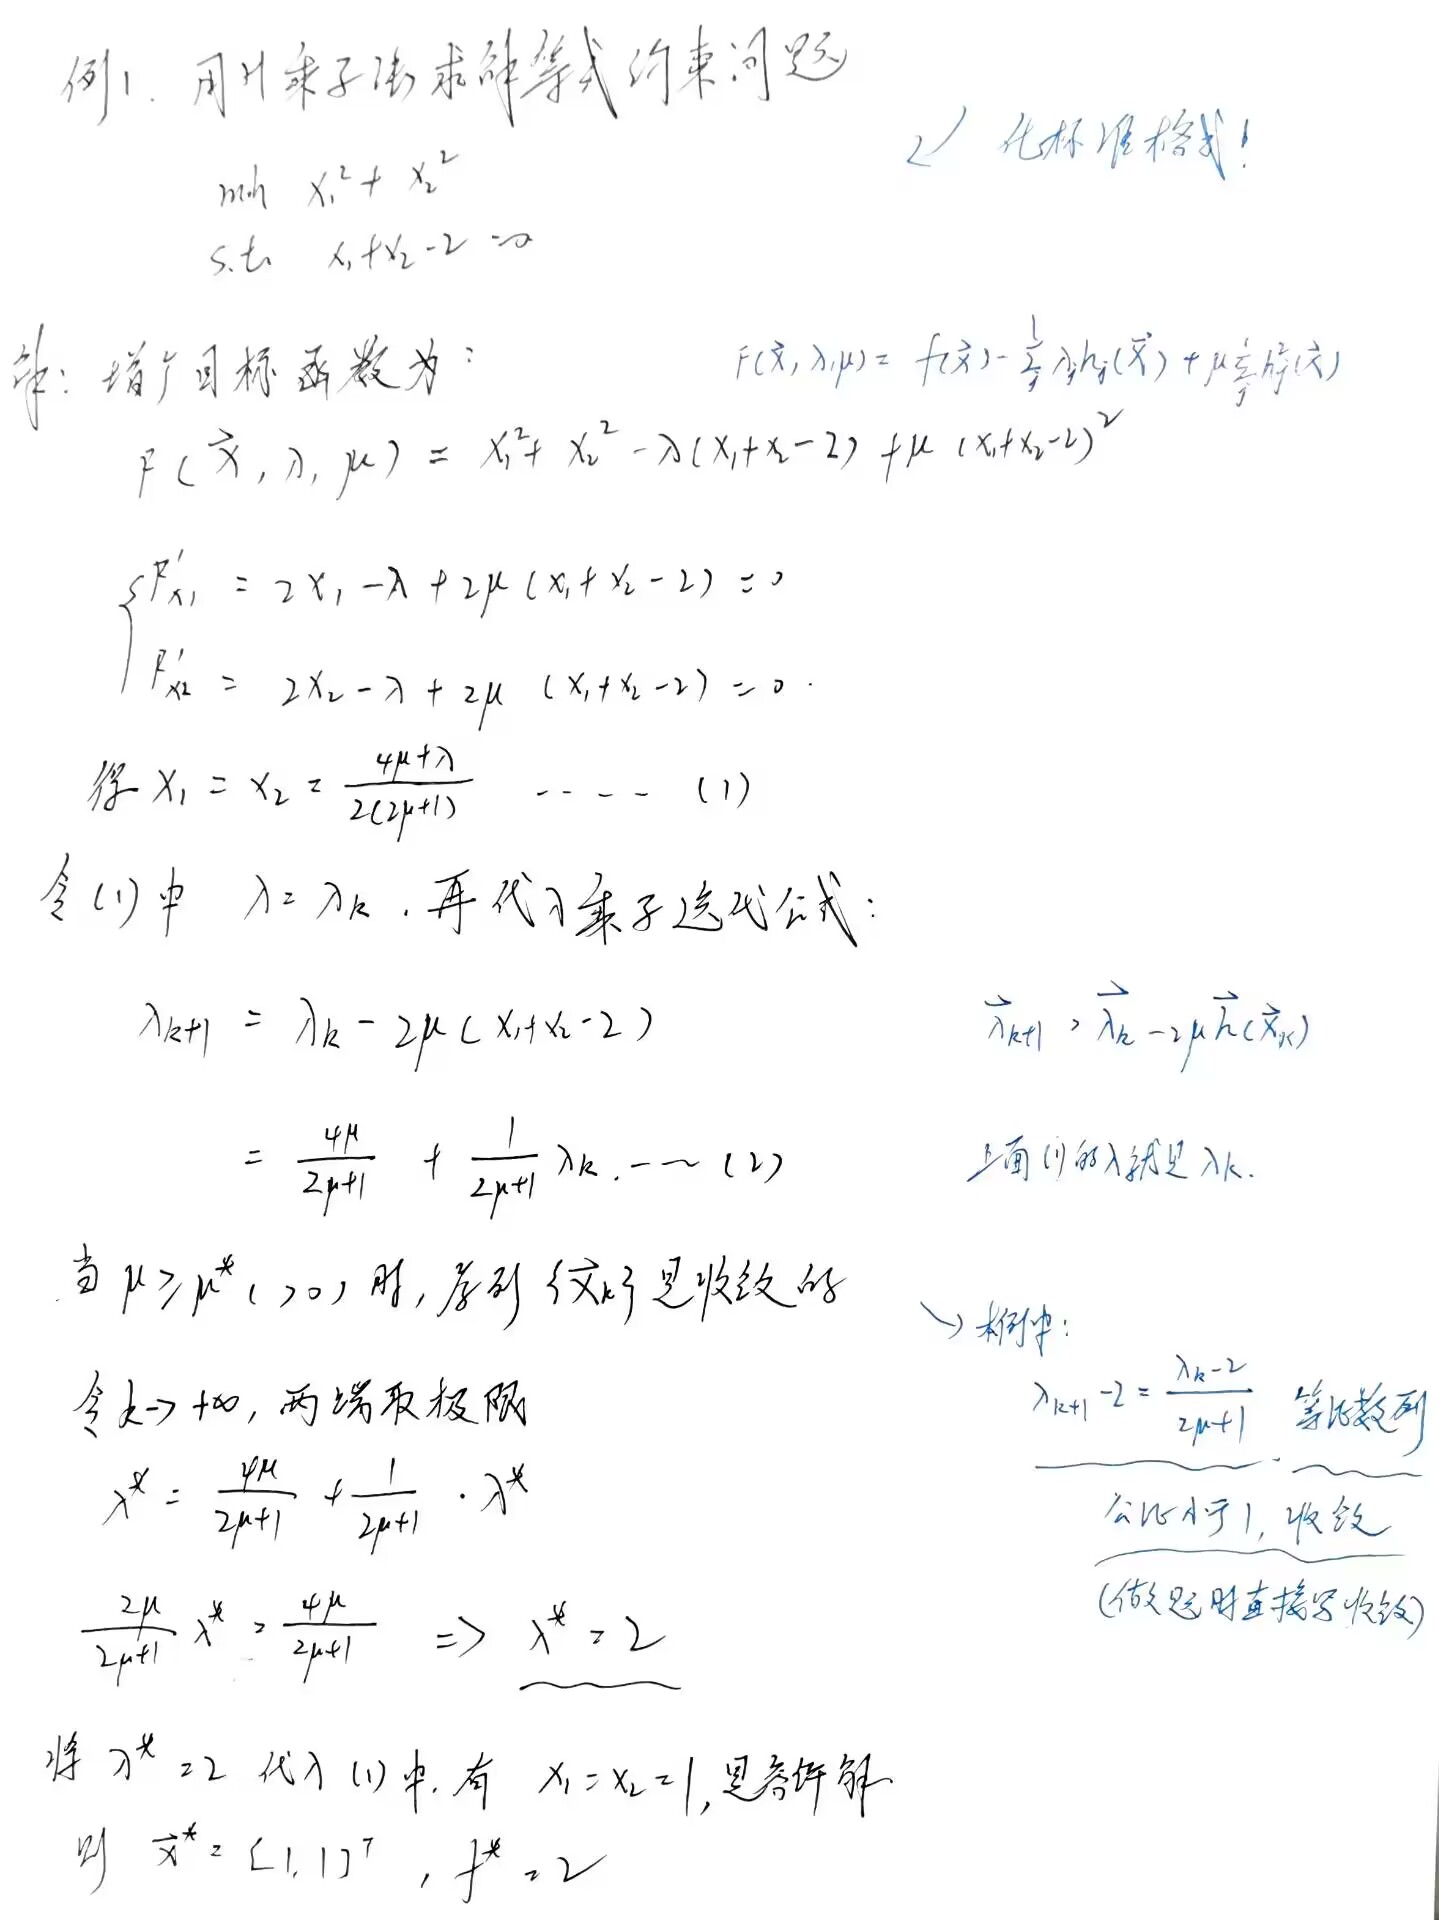 例1. 用H乘子法求解等式约束问题
✓ 化标准格式!
min x₁² + x₂²
s.t. x₁+x₂-2=0
解: 增广目标函数为:
F(x⃗, λ, μ) = f(x⃗) - Σⱼ λⱼhⱼ(x⃗) + μ Σⱼ hⱼ²(x⃗)
F(x⃗, λ, μ) = x₁² + x₂² - λ(x₁+x₂-2) + μ(x₁+x₂-2)²
F'x₁ = 2x₁ - λ + 2μ(x₁+x₂-2) = 0
F'x₂ = 2x₂ - λ + 2μ(x₁+x₂-2) = 0.
得 x₁ = x₂ = (4μ+λ)/(2(2μ+1)) ---- (1)
令(1)中 λ=λk. 再代入乘子迭代公式:
λk+1 = λk - 2μ(x₁+x₂-2)
λ⃗k+1 = λ⃗k - 2μh⃗(x⃗k)
= 4μ/(2μ+1) + 1/(2μ+1) λk. --- (2)
上面(1)的λ就是λk.
当 μ≥μ*(>0)时, 序列{x⃗k}是收敛的
↘ 本例中:
λk+1 - 2 = (λk-2)/(2μ+1). 等比数列
令k→+∞, 两端取极限
λ* = 4μ/(2μ+1) + 1/(2μ+1) · λ*
公比小于1, 收敛
(做题时直接写收敛)
2μ/(2μ+1) λ* = 4μ/(2μ+1) => λ* = 2
将 λ*=2 代入(1)中. 有 x₁=x₂=1, 是容许解
则 x⃗* = [1,1]ᵀ, f* = 2